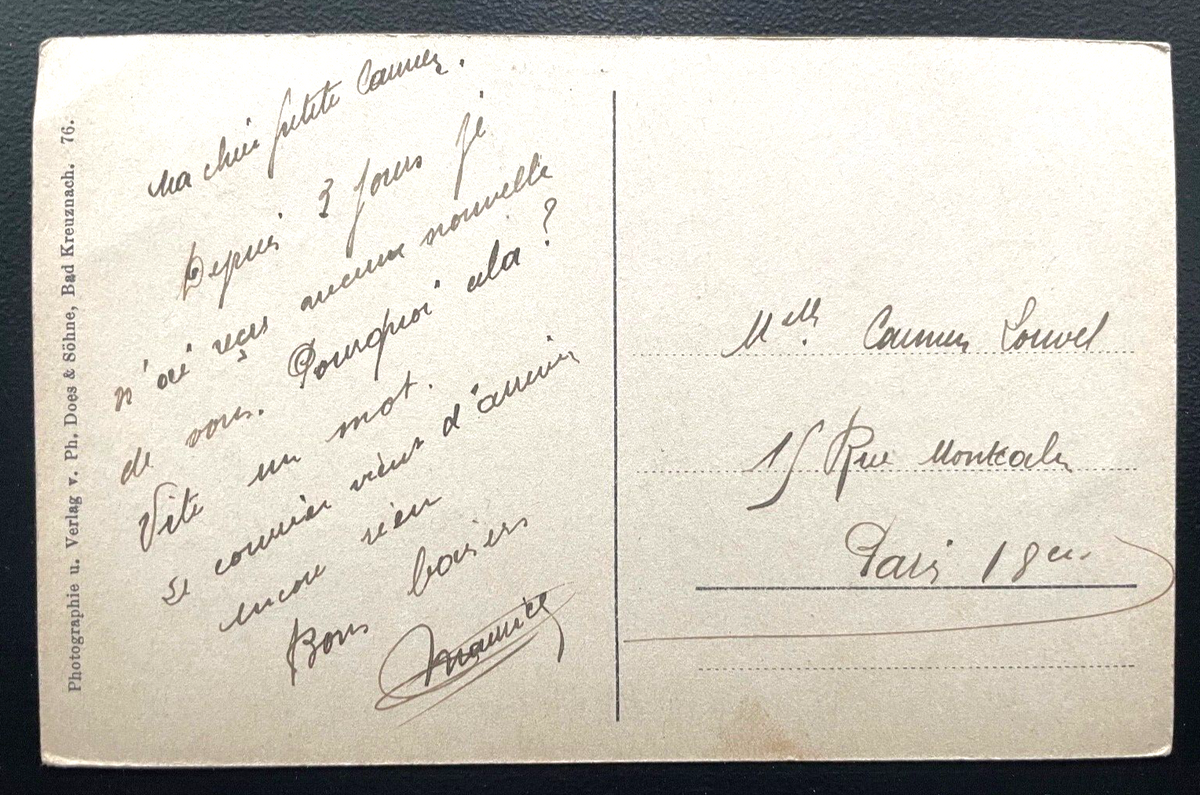 Photographie u. Verlag v. Ph. Does & Söhne, Bad Kreuznach. 76.
Ma chère petite Carmen.
Depuis 3 jours je
n'ai reçus aucune nouvelle
de vous. Pourquoi cela ?
Vite un mot.
Le courrier vient d'arriver
encore rien
Bons baisers
Maurice
Melle. Carmen Louvel
15 Rue Montcalm
Paris 18em